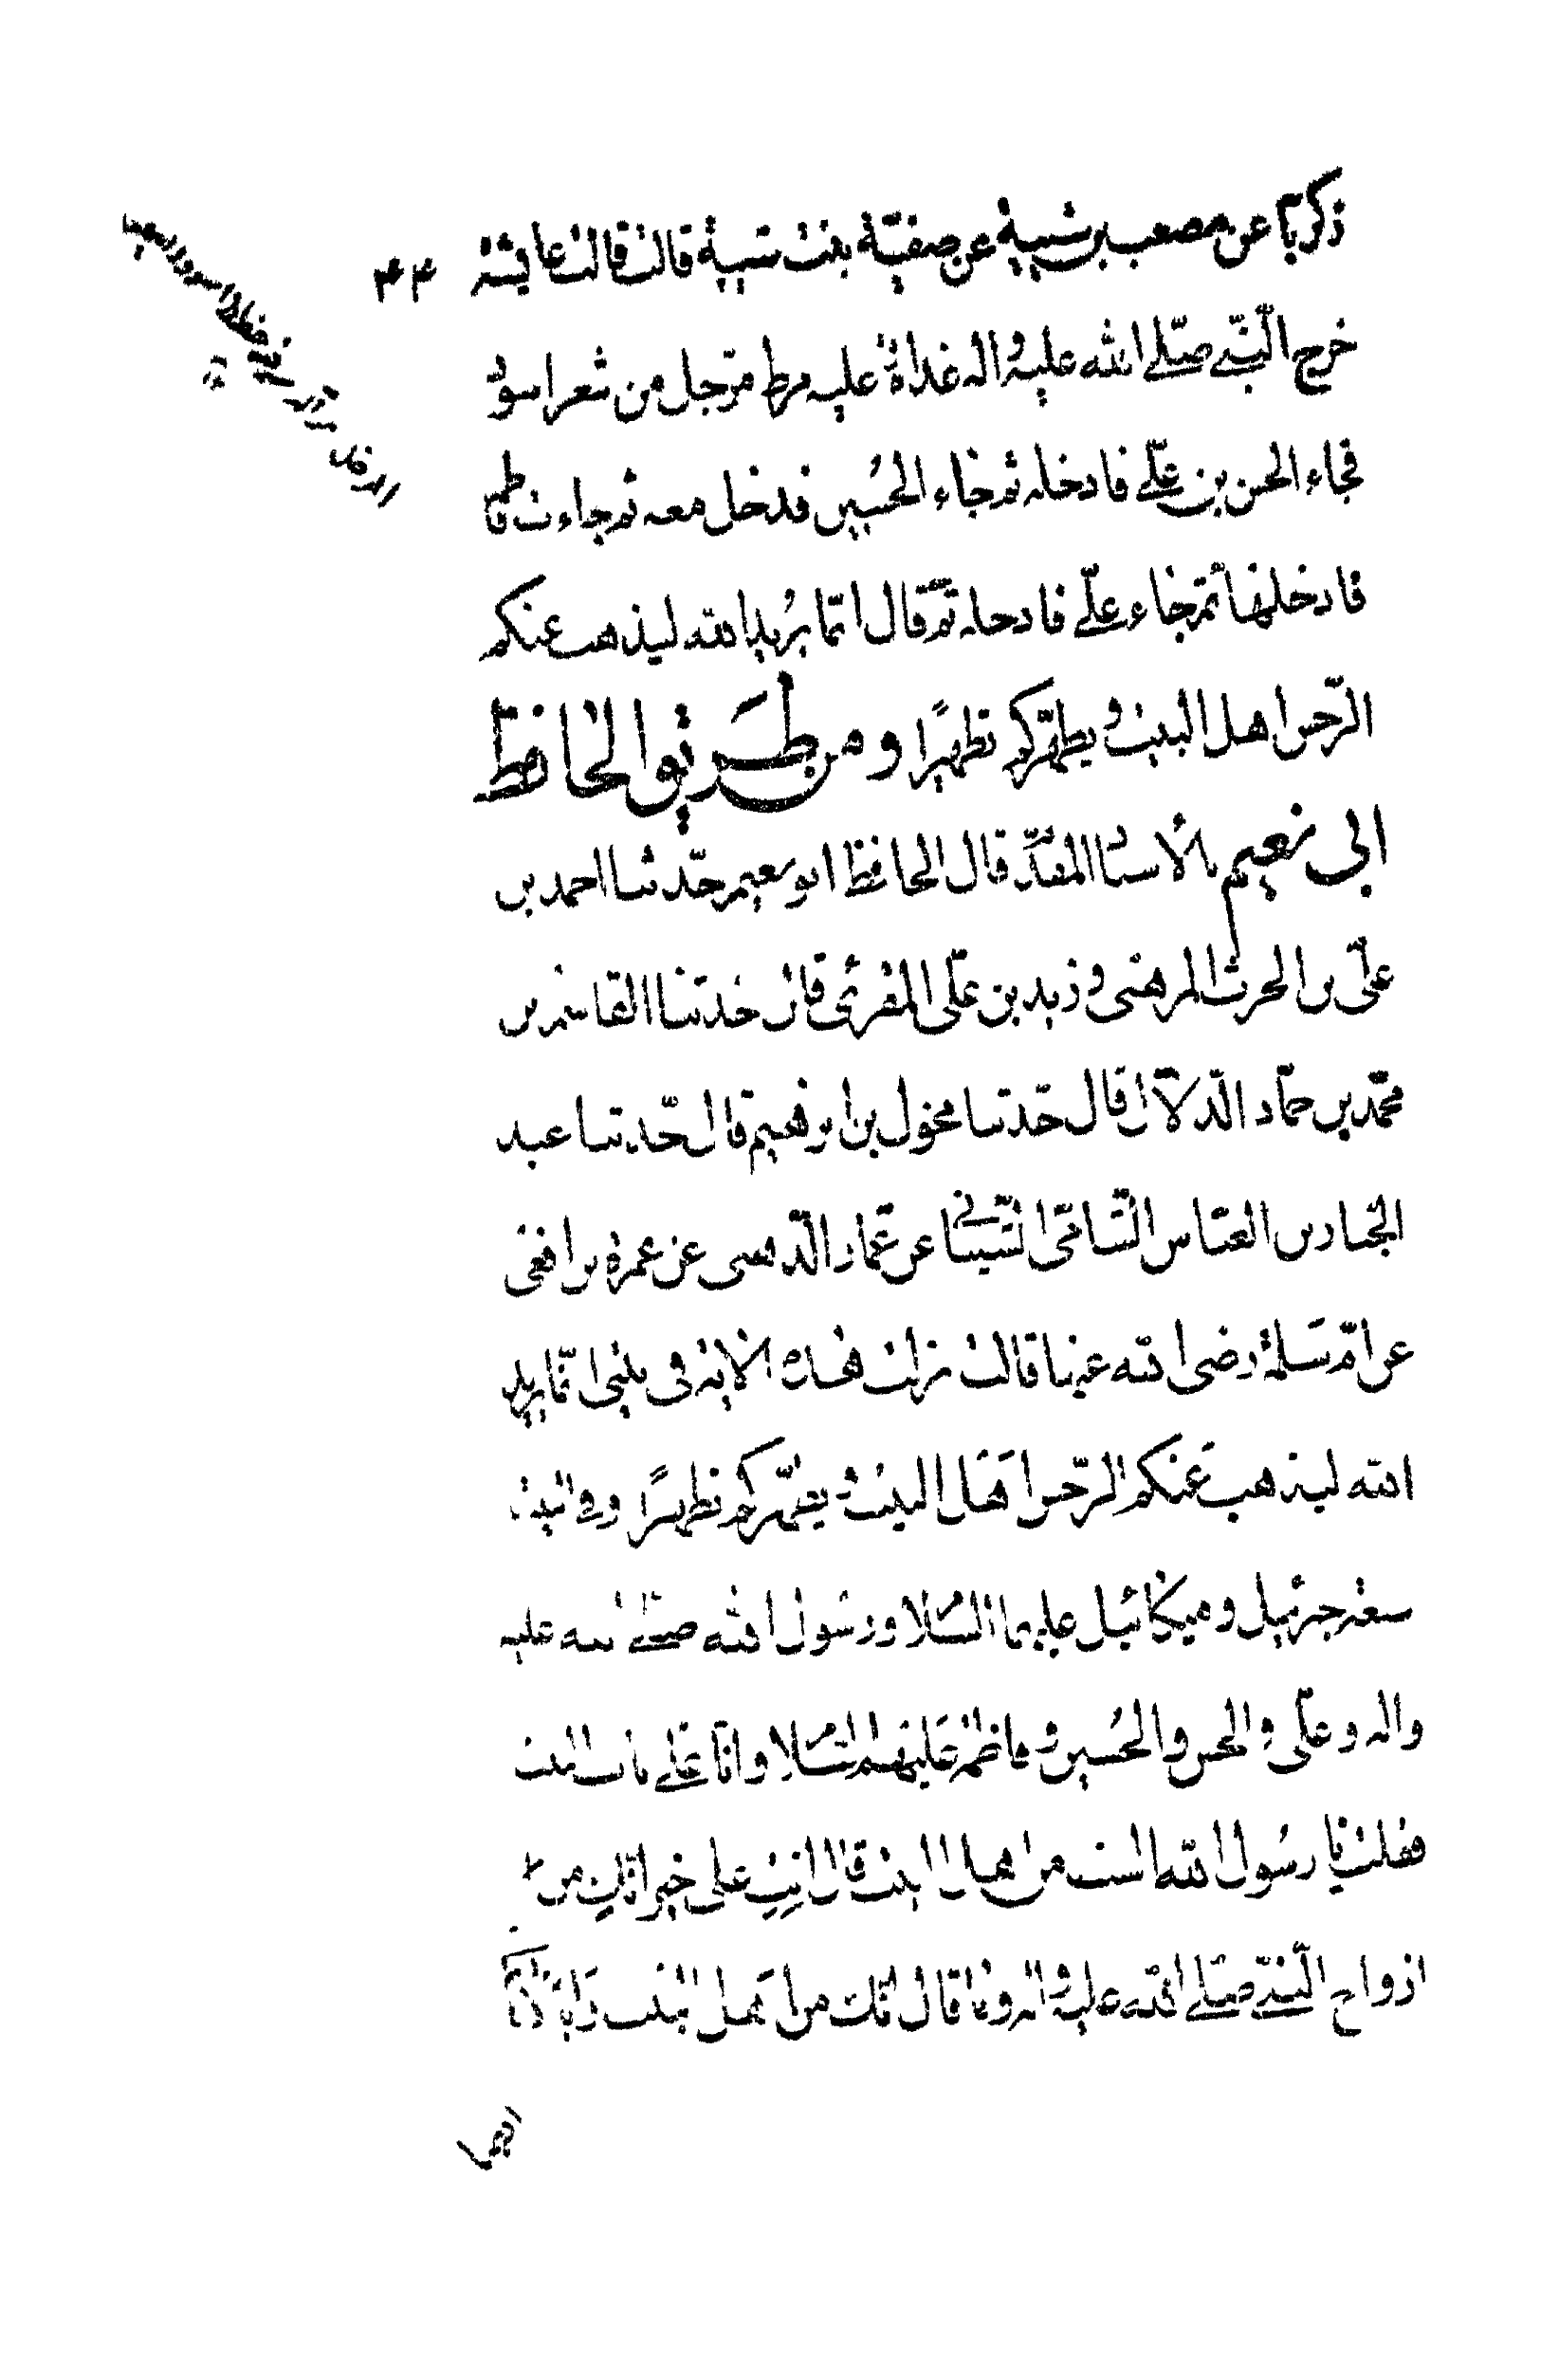 زكريا عن مصعب بن شيبة عن صفية بنت شيبة قالت قالت عايشة
خرج النبي صلى الله عليه واله غداة عليه مرط مرجل من شعر اسود
فجاء الحسن بن علي فادخله ثم جاء الحسين فدخل معه ثم جاءت فاطمة
فادخلها ثم جاء علي فادخله ثم قال انما يريد الله ليذهب عنكم
الرجس اهل البيت ويطهركم تطهيرا ومن طريق الحافظ
ابي نعيم بالاسناد المقدم قال الحافظ ابو نعيم حدثنا احمد بن
علي بن الحرث المرهبي وزيد بن علي المقرئ قالا حدثنا القاسم بن
محمد بن حماد الدلال قال حدثنا مخول بن ابرهيم قال حدثنا عبد
الجبار بن العباس الشامي الشيباني عن عمار الدهني عن عمرة بن افعى
عن ام سلمة رضي الله عنها قالت نزلت هذه الاية في بيتي انما يريد
الله ليذهب عنكم الرجس اهل البيت ويطهركم تطهيرا وفي البيت
سبعة جبرئيل وميكائيل عليهما السلام ورسول الله صلى الله عليه
واله وعلي والحسن والحسين وفاطمة عليهم السلام وانا على باب البيت
فقلت يا رسول الله الست من اهل البيت قال انت على خير انك من
ازواج النبي صلى الله عليه واله وما قال انك من اهل البيت
٣٣